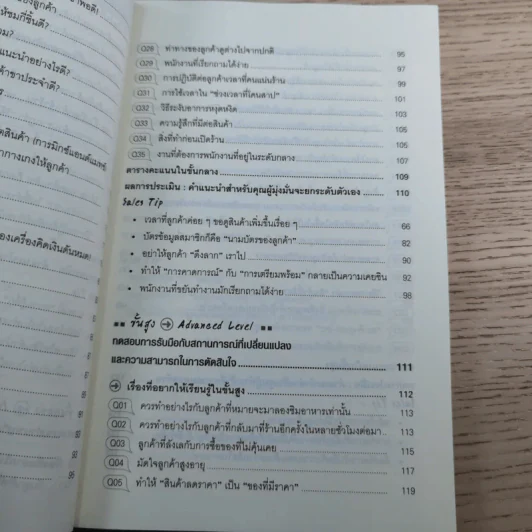 ของลูกค้า
ให้ชมกี่ชิ้นดี?
แนะนำอย่างไรดี?
ค้าขาประจำดี?
กางเกงให้ลูกค้า
Q28 ท่าทางของลูกค้าดูต่างไปจากปกติ 95
Q29 พนักงานที่เรียกถามได้ง่าย 97
Q30 การปฏิบัติต่อลูกค้าเวลาที่คนแน่นร้าน 99
Q31 การใช้เวลาใน "ช่วงเวลาที่โดนสาป" 101
Q32 วิธีระงับอาการหงุดหงิด 103
Q33 ความรู้สึกที่มีต่อสินค้า 105
Q34 สิ่งที่ทำก่อนเปิดร้าน 106
Q35 งานที่ต้องการพนักงานที่อยู่ในระดับกลาง 107
ตารางคะแนนในขั้นกลาง 109
ผลการประเมิน : คำแนะนำสำหรับคุณผู้มุ่งมั่นจะยกระดับตัวเอง 110
Sales Tip
• เวลาที่ลูกค้าค่อย ๆ ขอดูสินค้าเพิ่มขึ้นเรื่อย ๆ 66
• บัตรข้อมูลสมาชิกก็คือ "นามบัตรของลูกค้า" 82
• อย่าให้ลูกค้า "ดึงลาก" เราไป 90
• ทำให้ "การคาดการณ์" กับ "การเตรียมพร้อม" กลายเป็นความเคยชิน 92
• พนักงานที่ขยันทำงานมักเรียกถามได้ง่าย 98
ขั้นสูง → Advanced Level
ทดสอบการรับมือกับสถานการณ์ที่เปลี่ยนแปลง
และความสามารถในการตัดสินใจ 111
→ เรื่องที่อยากให้เรียนรู้ในขั้นสูง 112
Q01 ควรทำอย่างไรกับลูกค้าที่หมายจะมาลองชิมอาหารเท่านั้น 113
Q02 ควรทำอย่างไรกับลูกค้าที่กลับมาที่ร้านอีกครั้งในหลายชั่วโมงต่อมา 113
Q03 ลูกค้าที่ลังเลกับการซื้อของที่ไม่คุ้นเคย 115
Q04 มัดใจลูกค้าสูงอายุ 117
Q05 ทำให้ "สินค้าลดราคา" เป็น "ของที่มีราคา" 119